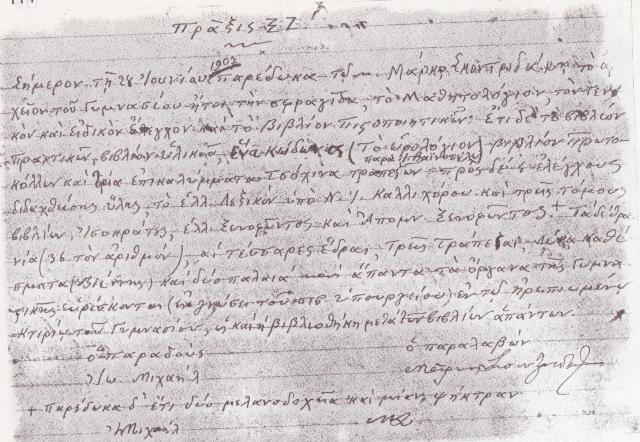 Πρᾶξις ΞΖ
Σήμερον τῇ 28 Ἰουνίου 1907 παρέδωκα τῷ Μάρκῳ τὸ ἀρ
χεῖον τοῦ Γυμνασίου ἤτοι τὴν σφραγῖδα τὸ Μαθητολόγιον, τὸν Γενι
κὸν καὶ εἰδικὸν ἔλεγχον καὶ τὸ Βιβλίον Πιστοποιητικῶν. Ἔτι δὲ τὸ βιβλίον
πρακτικῶν, βιβλίον ὑλικοῦ, ἕνα κώδωνα (τὸ ὡρολόγιον) βιβλίον πρωτο
κόλλων καὶ τρία ἐπικαλύμματα τσόχινα τραπεζῶν πρὸς δὲ ἐλέγχους
διδαχθείσης ὕλης τὸ ἑλλ. Λεξικὸν ὑπὸ Καλλιχόρου καὶ τρεῖς τόμους
βιβλίων, Ἰσοκράτης, ἑλλ. Ξενοφῶντος καὶ Ἀπομν. Ξενοφῶντος. + Τὰ δὲ θρα
νία (36 τὸν ἀριθμὸν) αἱ τέσσαρες ἕδραι, τρεῖς τράπεζαι, δέκα καθί
σματα (Βιέννης) καὶ δύο παλαιὰ καὶ ἅπαντα τὰ ὄργανα τῆς Γυμνα
στικῆς εὑρίσκονται (ἐν γνώσει τοῦ ὑπουργείου) ἐν τῷ ἠρειπωμένῳ
κτιρίῳ τοῦ Γυμνασίου, ᾗ καὶ ἡ βιβλιοθήκη μετὰ τῶν βιβλίων ἁπάντων.
ὁ παραδοὺς ὁ παραλαβὼν
Ἰω. Μιχαήλ
+ παρέδωκα δ' ἔτι δύο μελανοδοχεῖα καὶ μίαν ψήκτραν
Ἰ Μιχαήλ